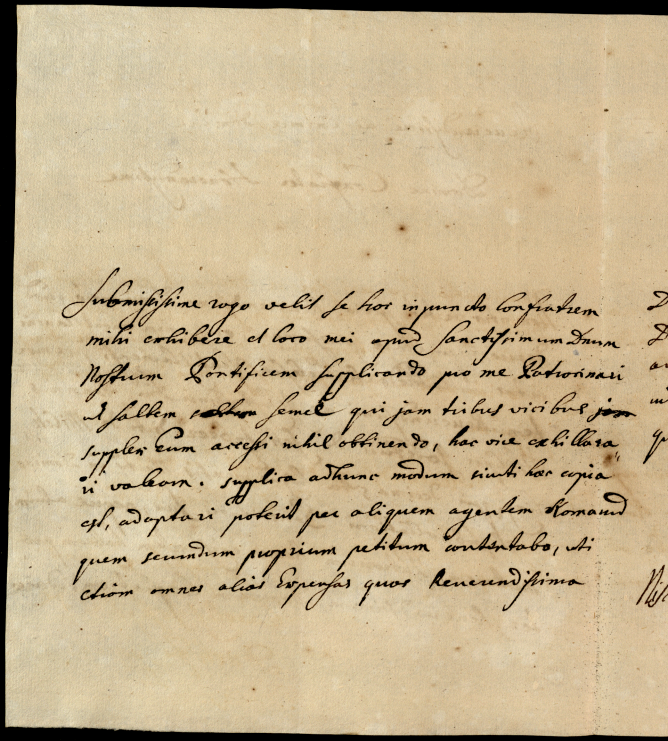 Submississime rogo velit se hoc in puncto Confratrem
mihi exhibere et loco mei apud Sanctissimum Dnum
Nostrum Pontificem supplicando pro me Patrocinari
ut saltem semel qui jam tribus vicibus jam
supplex Eum accessi nihil obtinendo, hac vice exhillara„
ri valeam. supplica adhunc modum sicuti haec copia
est, adaptari poterit per aliquem agentem Romanum
quem secundum proprium petitum contentabo, uti
etiam omnes alias Expensas quas Reverendissima